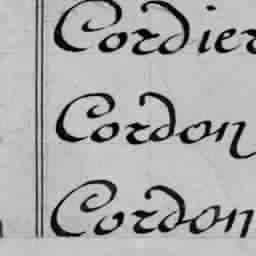 Cordier
Cordon
Cordon